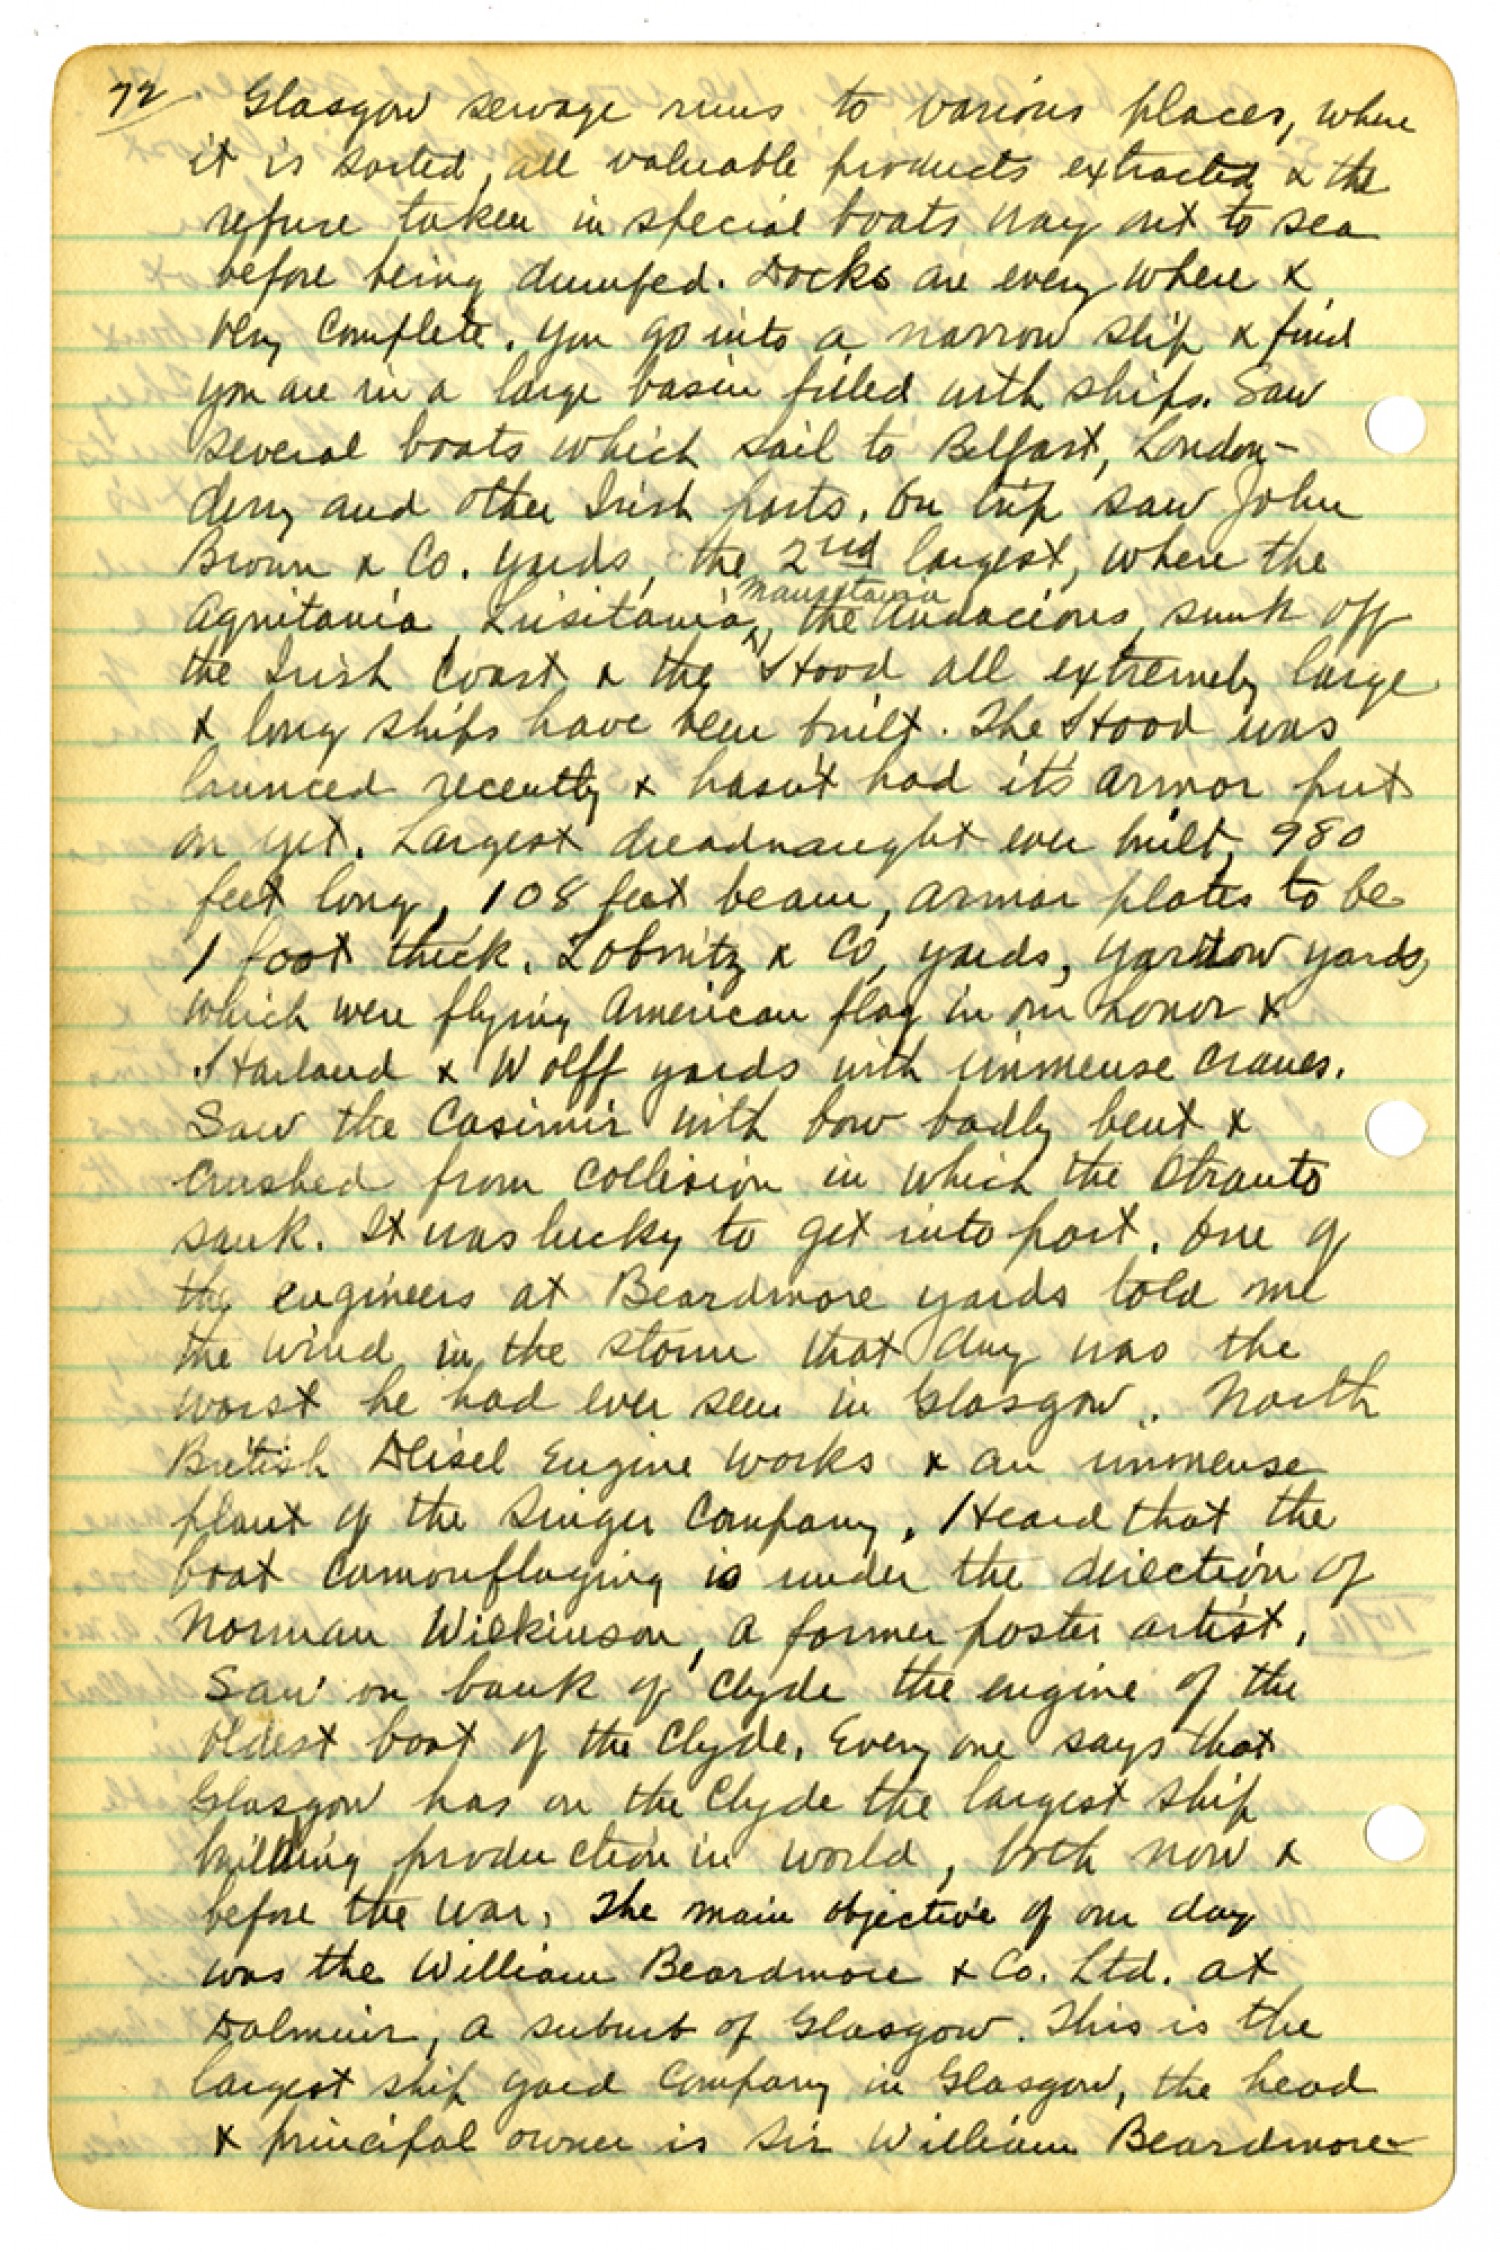 72 Glasgow sewage runs to various places, where
it is sorted, all valuable products extracted & the
refuse taken in special boats way out to sea
before being dumped. Docks are every where &
very complete. You go into a narrow slip & find
you are in a large basin filled with ships. Saw
several boats which sail to Belfast, London-
derry and other Irish ports. On trip saw John
Brown & Co. yards, the 2nd largest, where the
Mauretania
Aquitania, Lusitania, the Audacious, sunk off
the Irish Coast & the Hood all extremely large
& long ships have been built. The Hood was
launced recently & hasn't had it's armor put
on yet. Largest dreadnaught ever built, 980
feet long, 108 feet beam, armor plates to be
1 foot thick. Lobnitz & Co, yards, Yarrow yards,
which were flying American flag in our honor &
Harland & Wolff yards with immense cranes.
Saw the Casimir with bow badly bent &
crushed from collision in which the Otranto
sank. It was lucky to get into port. One of
the engineers at Beardmore yards told me
the wind in the storm that day was the
worst he had ever seen in Glasgow. North
British Deisel Engine Works & an immense
plant of the Singer Company. Heard that the
boat camouflaging is under the direction of
Norman Wilkinson, a former poster artist.
Saw on bank of Clyde the engine of the
oldest boat of the Clyde. Every one says that
Glasgow has on the Clyde the largest ship
building production in world, both now &
before the war. The main objective of our day
was the William Beardmore & Co. Ltd. at
Dalmuir, a suburb of Glasgow. This is the
largest ship yard Company in Glasgow, the head
& principal owner is Sir William Beardmore